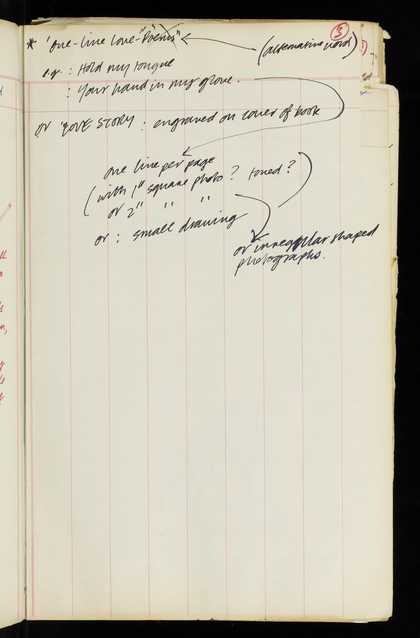 * 'one-line love-"Poems"
(alternative word)
3
eg : Hold my tongue
: Your hand in my glove.
or 'LOVE STORY : engraved on cover of book
one line per page
(with 1" square photo? toned?)
or 2" " "
or : small drawing
or irregular shaped
photographs.